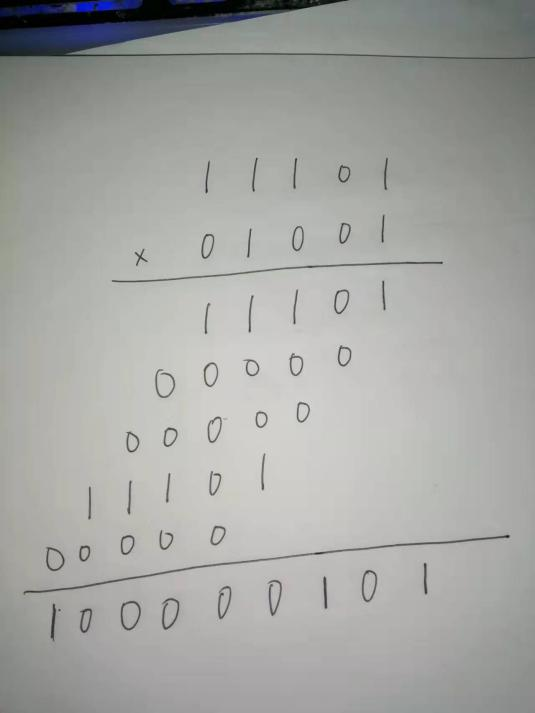 1 1 1 0 1
× 0 1 0 0 1
1 1 1 0 1
0 0 0 0 0
0 0 0 0 0
1 1 1 0 1
0 0 0 0 0
1 0 0 0 0 0 1 0 1